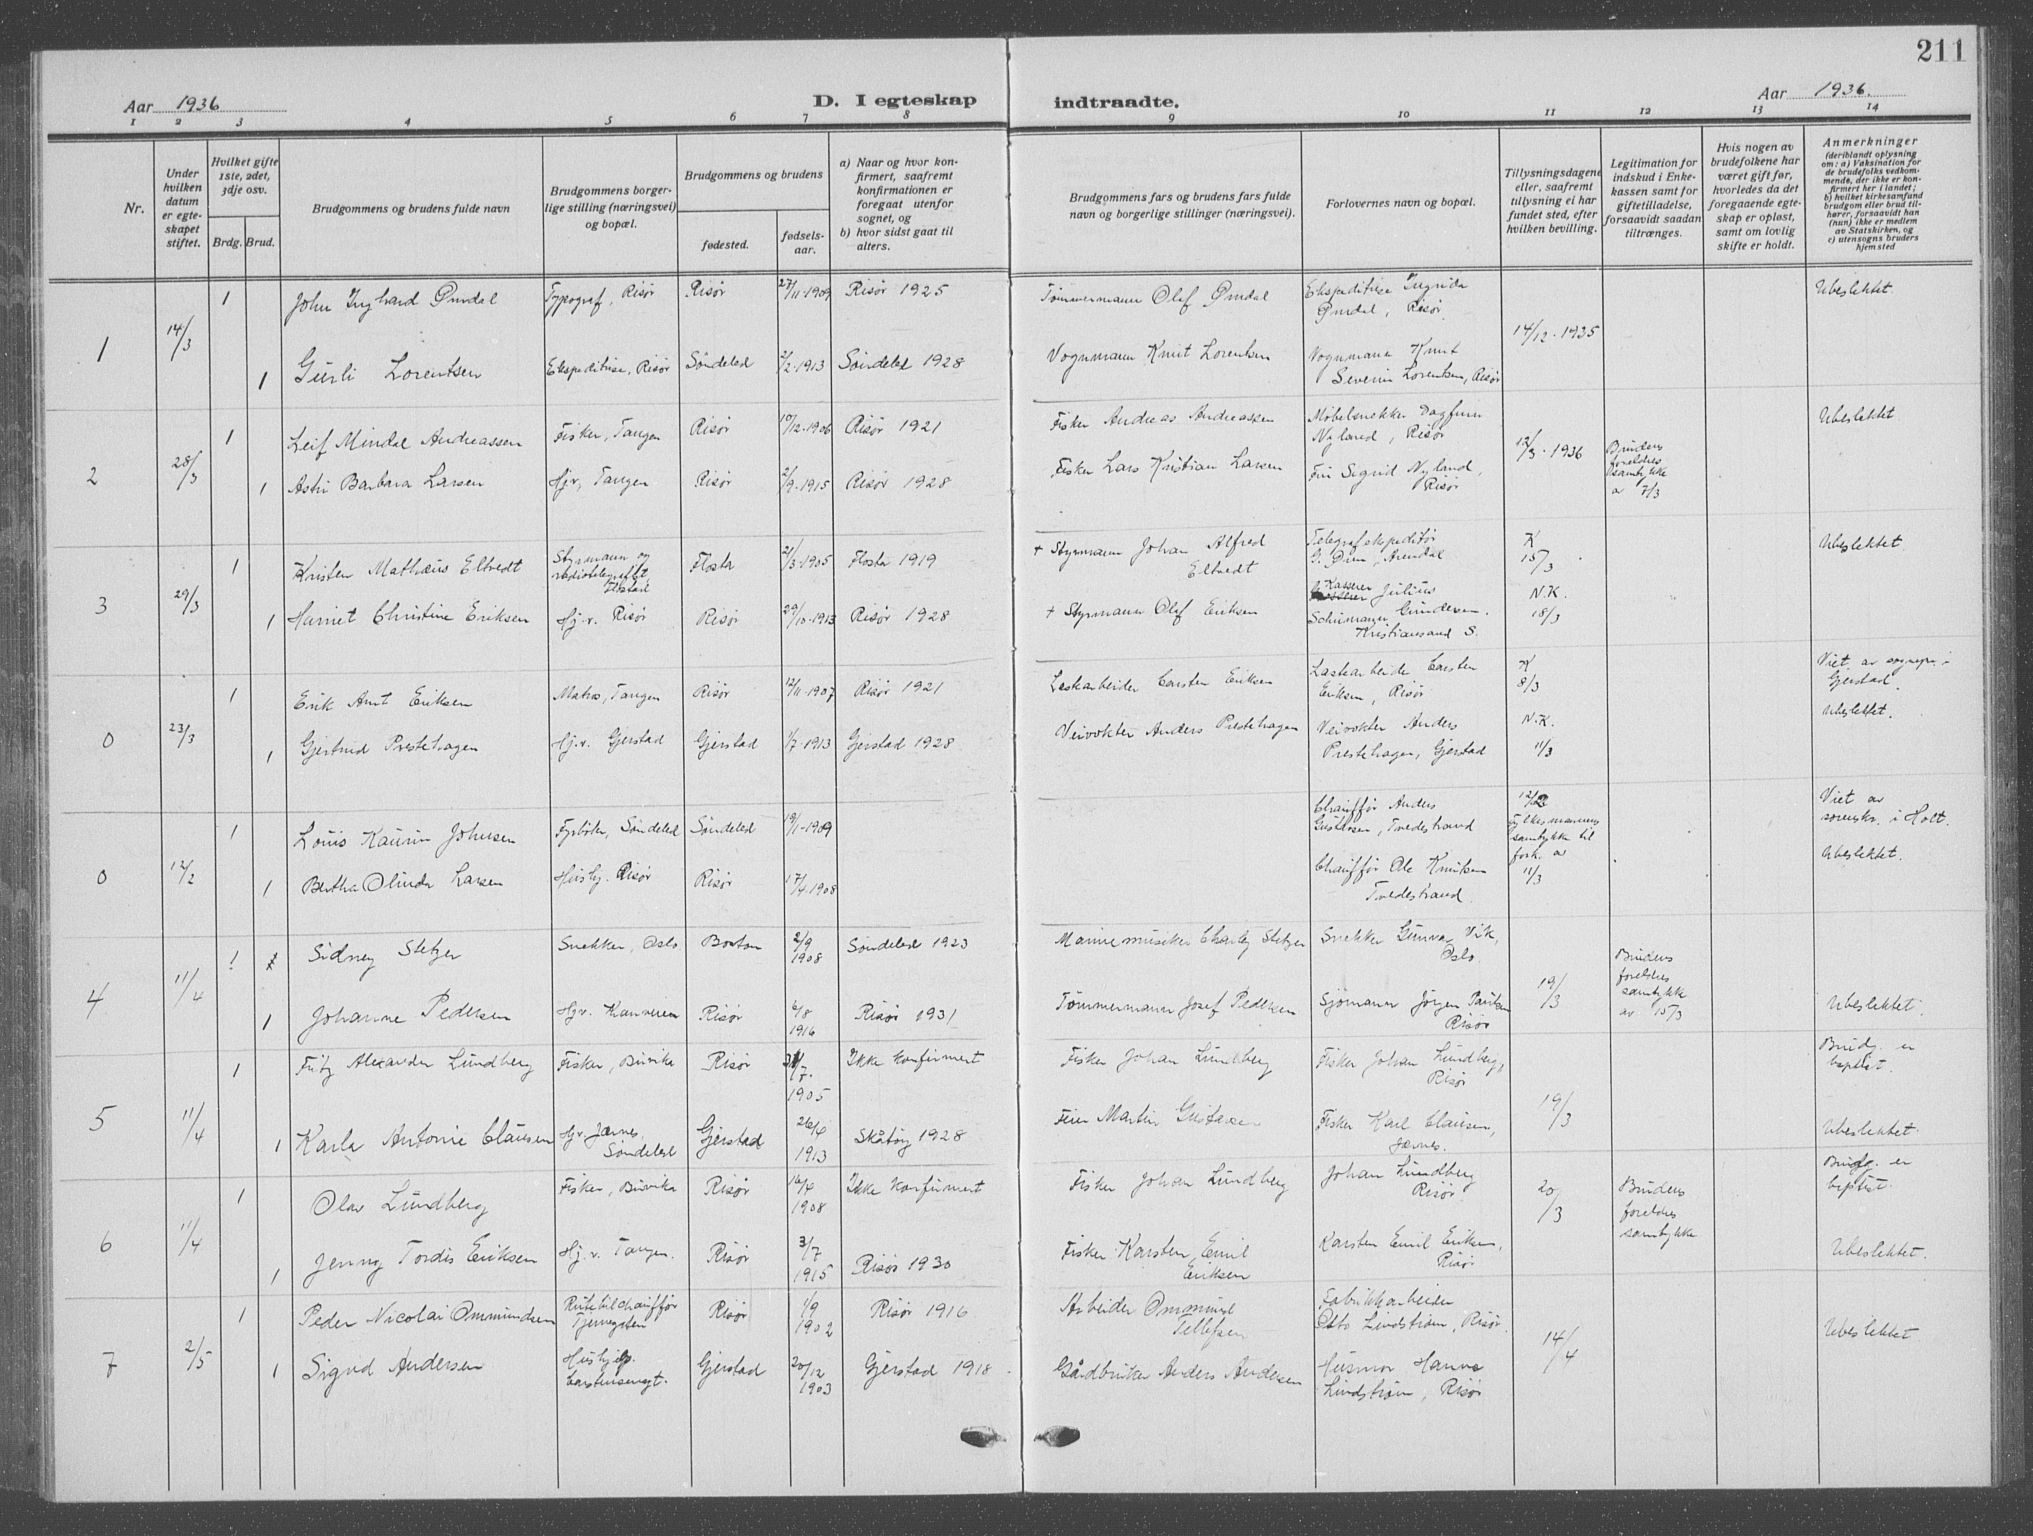 211
Aar 1936
D. I egteskap
indtraadte.
Aar 1936.
1 2 3 4 5 6 7 8 9 10 11 12 13 14
Nr.
Under
hvilken
datum
er egte-
skapet
stiftet.
Hvilket gifte
1ste, 2det,
3dje osv.
Brdg. Brud.
Brudgommens og brudens fulde navn
Brudgommens borger-
lige stilling (næringsvei)
og bopæl.
Brudgommens og brudens
fødested.
fødsels-
aar.
a) Naar og hvor kon-
firmert, saafremt
konfirmationen er
foregaat utenfor
sognet, og
b) hvor sidst gaat til
alters.
Brudgommens fars og brudens fars fulde
navn og borgerlige stillinger (næringsvei).
Forlovernes navn og bopæl.
Tillysningsdagene
eller, saafremt
tillysning ei har
fundet sted, efter
hvilken bevilling.
Legitimation for
indskud i Enke-
kassen samt for
giftetilladelse,
forsaavidt saadan
tiltrænges.
Hvis nogen av
brudefolkene har
været gift før,
hvorledes da det
foregaaende egte-
skap er opløst,
samt om lovlig
skifte er holdt.
Anmerkninger
(deriblandt oplysning
om: a) Vaksination for
de brudefolks vedkom-
mende, der ikke er kon-
firmert her i landet;
b) hvilket kirkesamfund
brudgom eller brud til-
hører, forsaavidt han
(hun) ikke er medlem
av Statskirken, og
c) utensogns bruders
hjemsted
1 14/3
1 John Inghard Ømdal Typograf, Risør Risør 27/11-1909 Risør 1925 Tømmermann Olaf Ømdal Ekspeditrise Ingrida
Ømdal, Risør. 14/12-1935 Ubeslektet.
1 Gurli Lorentsen Ekspeditrise, Risør Søndeled 2/2-1913 Søndeled 1928 Vognmann Knut Lorentsen Vognmann Knut
Severin Lorentsen, Risør
2 28/3
1 Leif Mindal Andreassen Fisker, Tangen Risør 10/12-1906 Risør 1921 Fisker Andreas Andreassen Møbelsnekker Dagfinn
Nyland, Risør 12/3-1936 Ubeslektet
1 Astri Barbara Larsen Hjv, Tangen Risør 2/9-1915 Risør 1928 Fisker Lars Kristian Larsen Fru Sigrid Nyland,
Risør
Brudens
foreldres
samtykke
av 7/3
3 29/3
1 Kristen Mathæus Eltvedt Styrmann og
radiotelegrafist
Flostad Flosta 21/3-1905 Flosta 1919 + Styrmann Johan Alfred
Eltvedt Telegrafekspeditør
G. Øren, Arendal K
15/3 Ubeslektet
1 Harriet Christine Eriksen Hj.v. Risør Risør 29/10-1913 Risør 1928 + Styrmann Olaf Eriksen Kasserer Julius
Schumann Gundersen.
Kristiansand S. N.K.
18/3
0 23/3
1 Erik Arnt Eriksen Matros, Tangen Risør 12/11-1907 Risør 1921 Lastarbeider Carsten Eriksen Lastarbeider Carsten
Eriksen, Risør K
8/3 Viet av sognepr. i
Gjerstad.
Ubeslektet.
1 Gjertrud Prestehagen Hj.v. Gjerstad Gjerstad 1/7-1913 Gjerstad 1928 Veivokter Anders Prestehagen Veivokter Anders
Prestehagen, Gjerstad N.K.
11/3
0 12/2
1 Louis Kaurin Johnsen Fyrbøter, Søndeled Søndeled 19/1-1909 Chauffør Anders
Gustavsen, Tvedestrand 12/2
Fylkesmannens
samtykke til
fork. av
11/3 Viet av
sorenskr. i Holt.
Ubeslektet.
1 Bertha Olinda Larsen Hushj. Risør Risør 17/4-1908 Chauffør Ole Knutsen
Tvedestrand.
4 11/4
1 Sidney Stetzer Snekker, Oslo Boston 2/9
1908 Søndeled 1923 Marinemusiker Charley Stetzer Snekker Gunvar Vik,
Oslo. 19/3
1 Johanne Pedersen Hjv. Kranveien Risør 6/8
1916 Risør 1931 Tømmermann Josef Pedersen Sjømann Jørgen Paulsen
Risør Ubeslektet.
Brudens
foreldres
samtykke
av 15/3
5 11/4
1 Fritz Alexander Lundberg Fisker, Buvika Risør 7.
1905 Ikke konfirmert Fisker Johan Lundberg Fisker Johan Lundberg,
Risør 19/3 Brudg. er
baptist.
1 Karla Antonie Clausen Hjv. Jærnes,
Søndeled Gjerstad 26/6
1913 Skåtøy 1928 Feier Martin Gustavsen Fisker Karl Clausen,
Jærnes. Ubeslektet.
6 11/4
1 Olav Lundberg Fisker, Buvika Risør 16/4
1908 Ikke konfirmert Fisker Johan Lundberg Johan Lundberg
Risør. 20/3 Brudens
foreldres
samtykke Brudg. er
baptist.
1 Jenny Tordis Eriksen Hj.v. Tangen. Risør 3/7
1915 Risør 1930 Fisker Karsten Emil
Eriksen Karsten Emil Eriksen,
Risør Ubeslektet.
7 2/5
1 Peder Nicolai Ommundsen Rutebilchauffør
Tjenngaten Risør 1/9
1902 Risør 1916 Arbeider Ommund
Tellefsen Fabrikkarbeider
Otto Lindstrøm, Risør. 14/4 Ubeslektet
1 Sigrid Andersen Hushjelp.
Carstensengt. Gjerstad 20/12
1903 Gjerstad 1918 Gårdbruker Anders Andersen Husmor Hanna
Lindstrøm, Risør